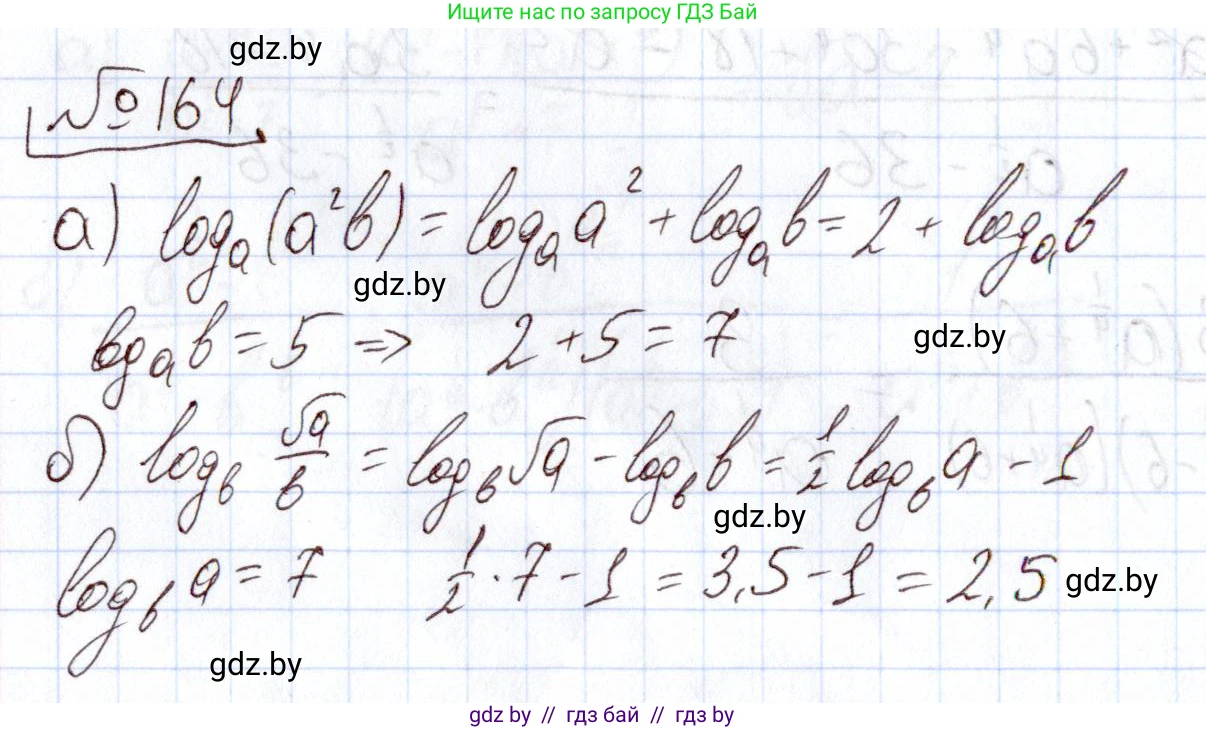 Ищите нас по запросу ГДЗ Бай
gdz.by
№164
а) log_a(a²b) = log_a a² + log_a b = 2 + log_a b
gdz.by
log_a b = 5 => 2 + 5 = 7 gdz.by
б) log_b √a/b = log_b √a - log_b b = 1/2 log_b a - 1
gdz.by
log_b a = 7 1/2 · 7 - 1 = 3,5 - 1 = 2,5 gdz.by
gdz.by
gdz by // гдз бай // гдз by